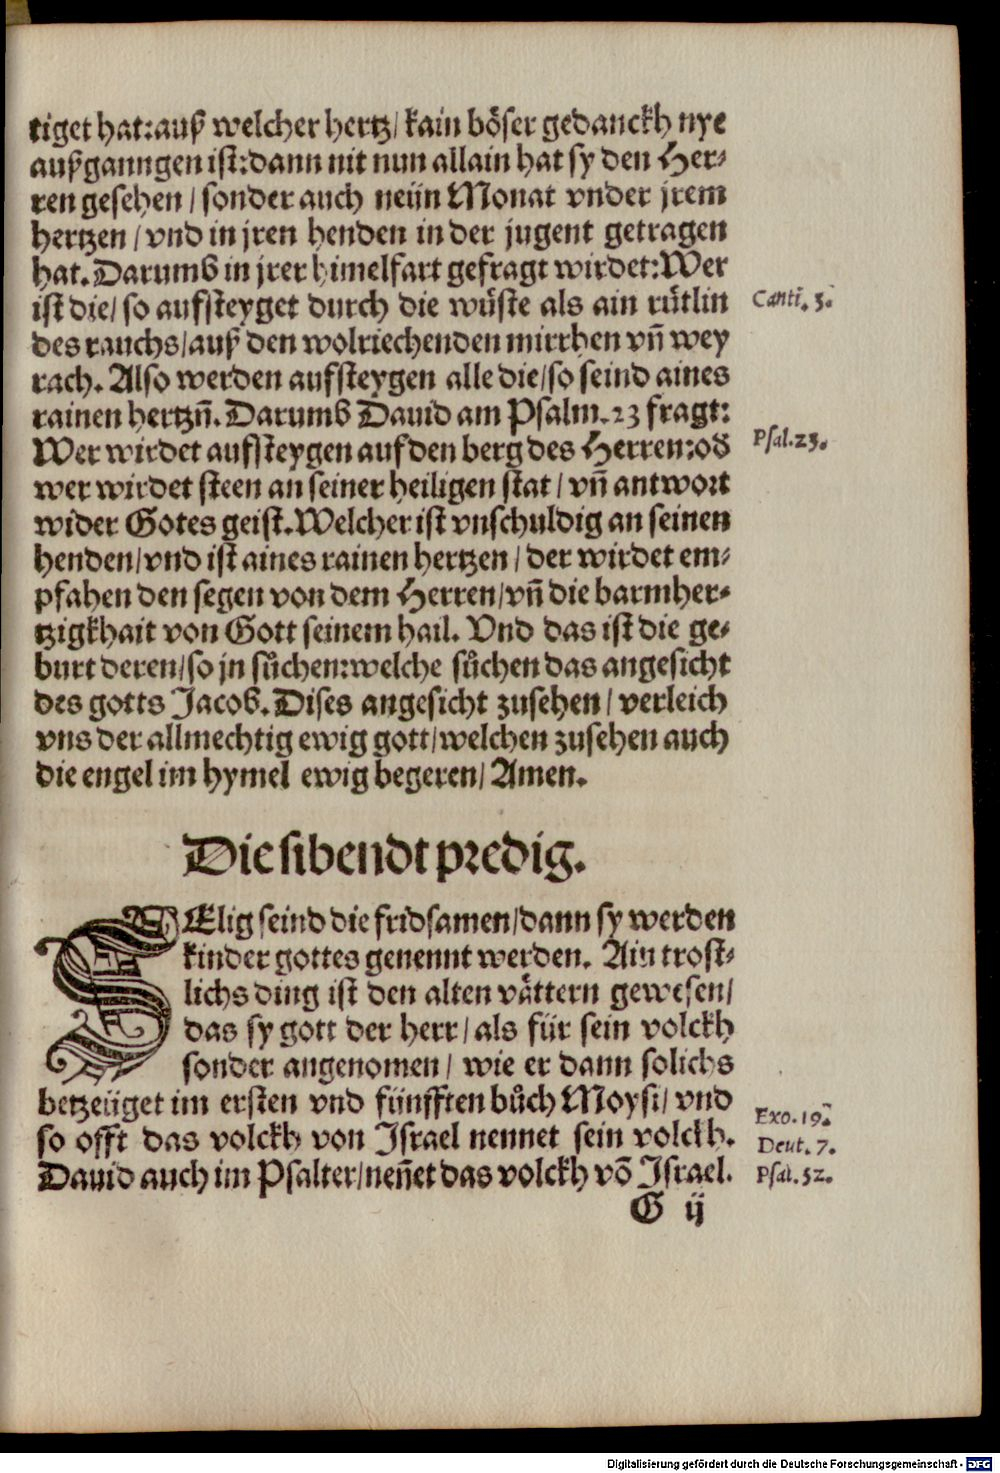 tiget hat:auß welcher hertz/ kain böser gedanckh nye
außganngen ist:dann nit nun allain hat sy den Her-
ren gesehen / sonder auch neün Monat vnder jrem
hertzen / vnd in jren henden in der jugent getragen
hat. Darumb in jrer himelfart gefragt wirdet:Wer
ist die/ so aufsteyget durch die wüste als ain rütlin
Canti. 3.
des rauchs/auß den wolriechenden mirrhen vñ wey
rach. Also werden aufsteygen alle die/so seind aines
rainen hertzñ. Darumb Dauid am Psalm. 23 fragt:
Wer wirdet aufsteygen auf den berg des Herren:od
Psal. 23.
wer wirdet steen an seiner heiligen stat / vñ antwort
wider Gotes geist. Welcher ist vnschuldig an seinen
henden/vnd ist aines rainen hertzen / der wirdet em-
pfahen den segen von dem Herren/vñ die barmher-
tzigkhait von Gott seinem hail. Vnd das ist die ge-
burt deren/so jn sůchen:welche sůchen das angesicht
des gotts Jacob. Dises angesicht zusehen / verleich
vns der allmechtig ewig gott/welchen zusehen auch
die engel im hymel ewig begeren/ Amen.
Die sibendt predig.
SElig seind die fridsamen/dann sy werden
kinder gottes genennt werden. Ain trost-
lichs ding ist den alten vättern gewesen/
das sy gott der herr/ als für sein volckh
sonder angenomen / wie er dann solichs
betzeüget im ersten vnd fünfften bůch Moysi/ vnd
Exo. 19.
so offt das volckh von Israel nennet sein volckh.
Deut. 7.
Dauid auch im Psalter/neñet das volckh võ Israel.
Psal. 52.
G ij
Digitalisierung gefördert durch die Deutsche Forschungsgemeinschaft - DFG